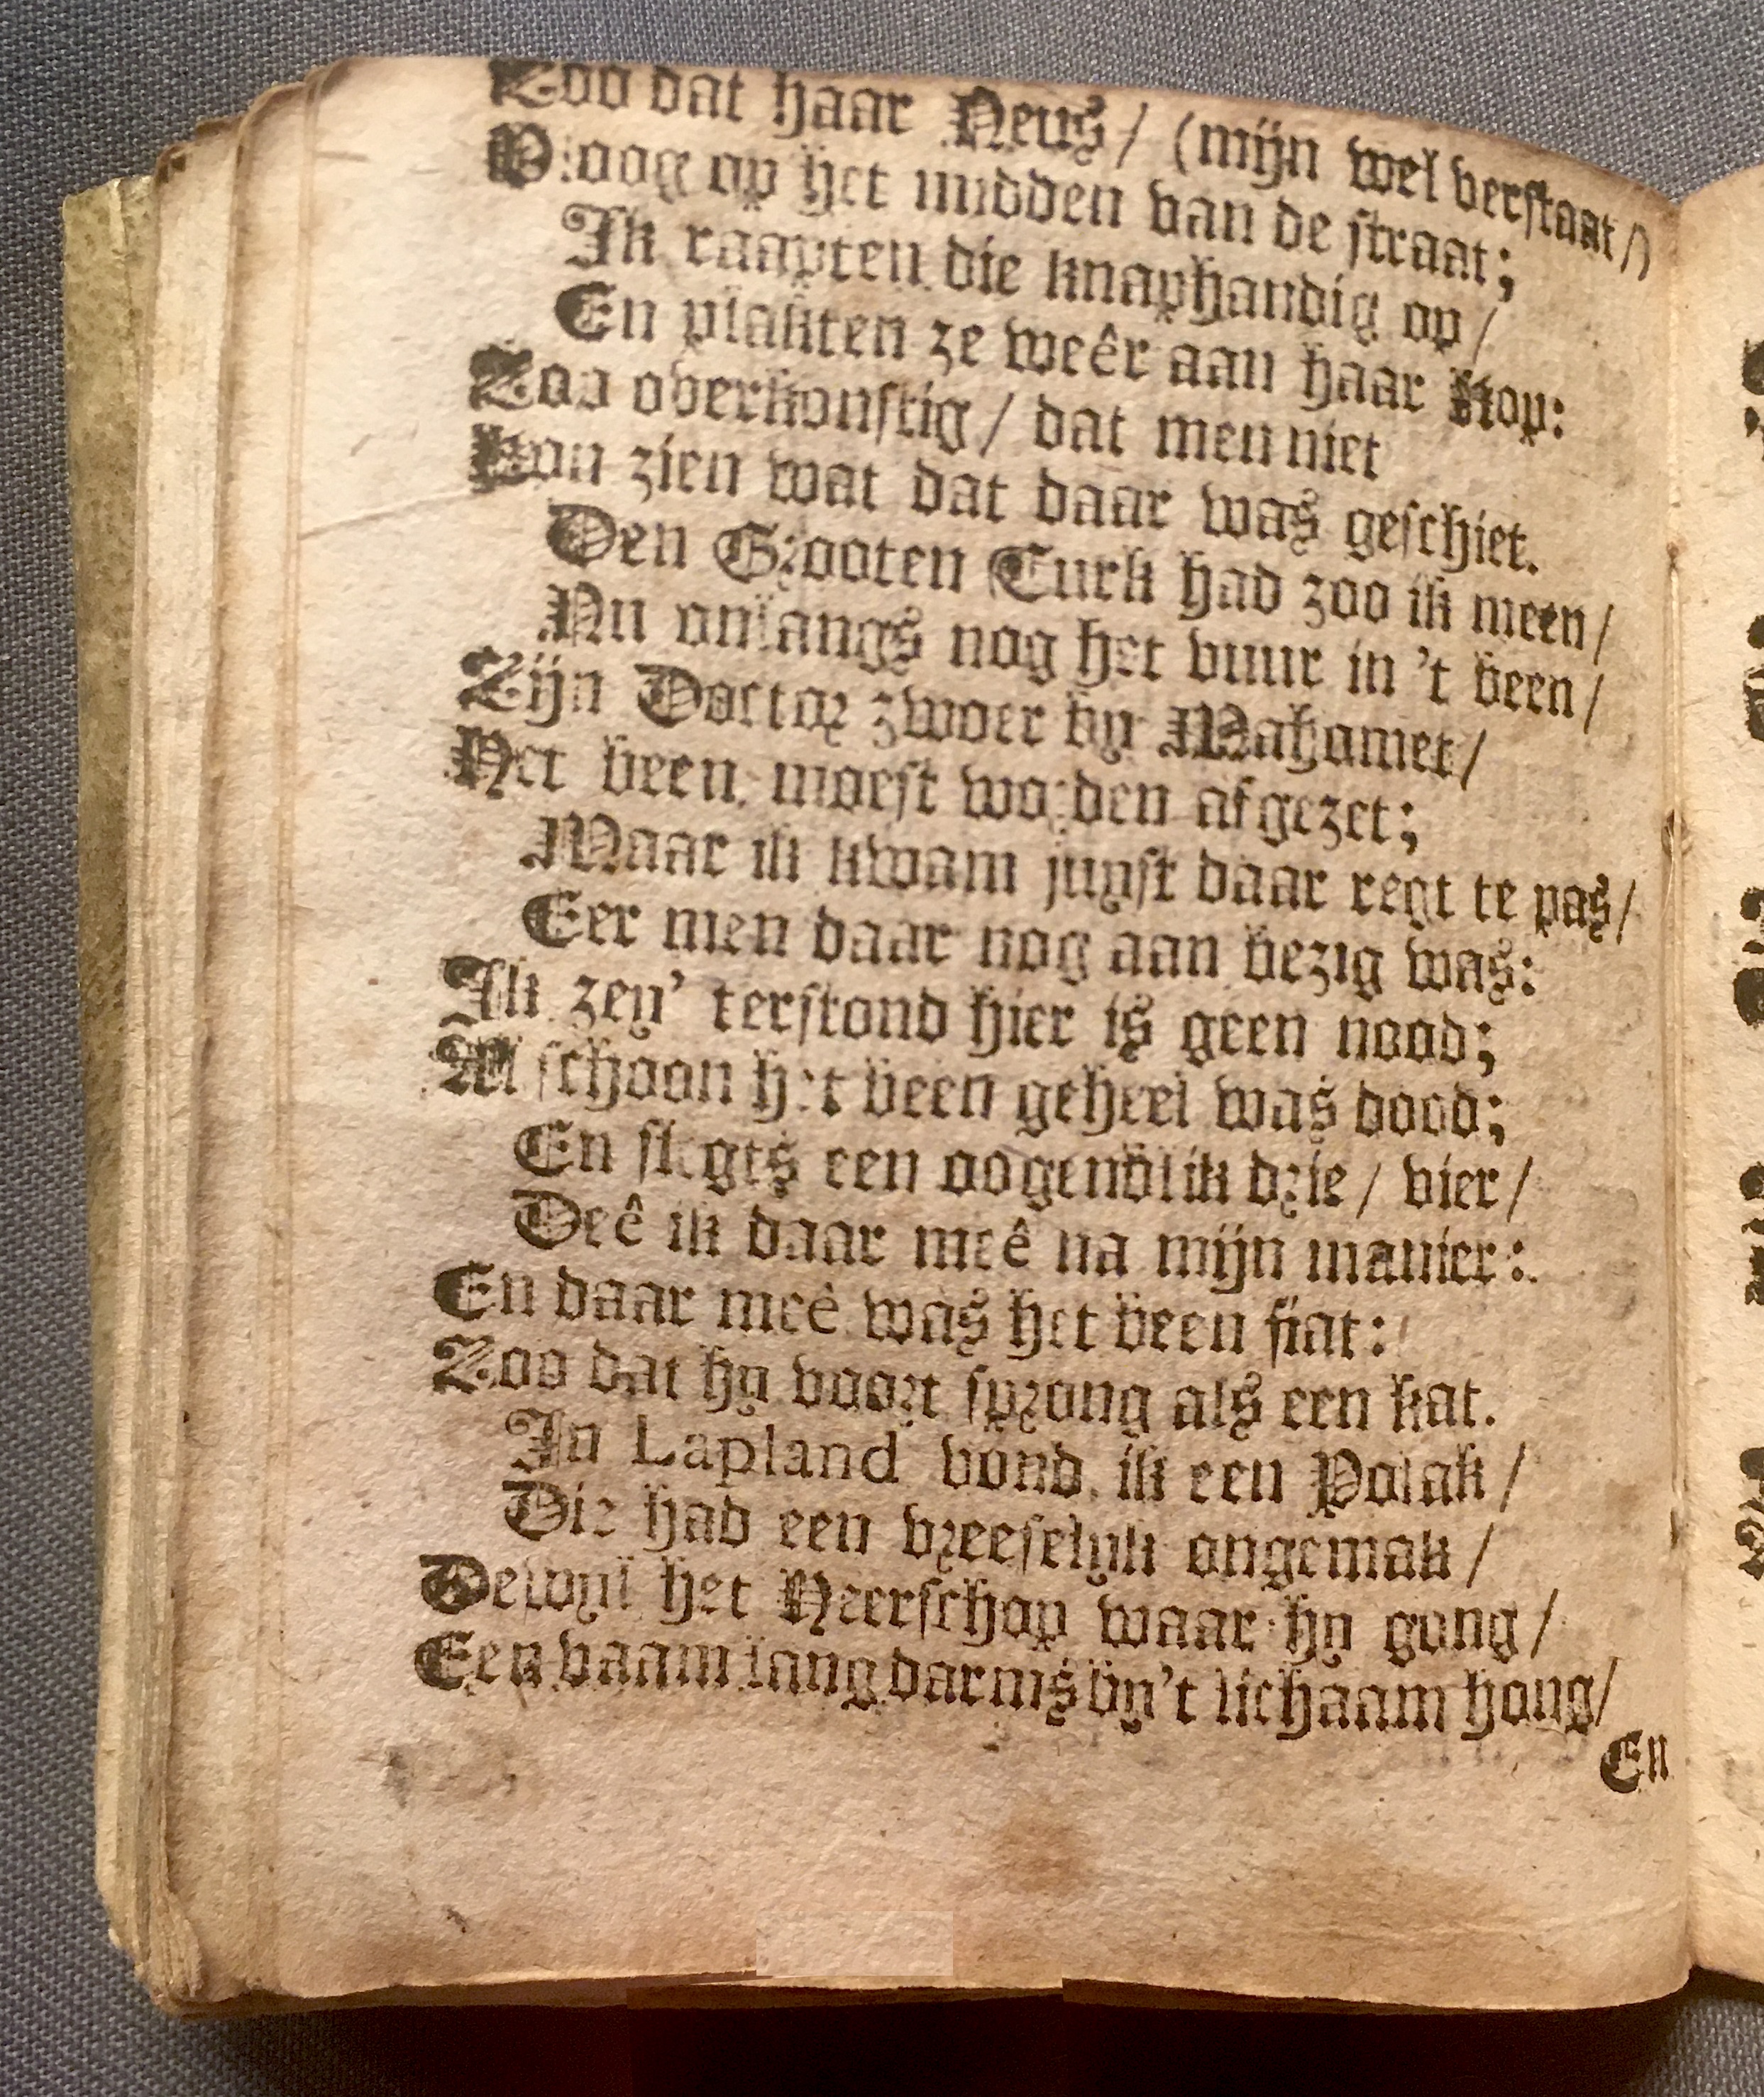 Zoo dat haar Neus / (mijn wel verstaat /)
Vloog op het midden van de straat;
Ik raapten die knaphandig op /
En plakten ze weêr aan haar kop:
Zoo overkonstig / dat men niet
Kon zien wat dat daar was geschiet.
Den Grooten Turk had zoo ik meen /
Nu onlangs nog het vuur in 't been /
Zijn Doctor zwoer by Mahomet /
Het been moest worden afgezet;
Maar ik kwam juyst daar regt te pas /
Eer men daar nog aan bezig was:
Ik zey' terstond hier is geen nood;
Al schoon het been geheel was dood;
En slegts een oogenblik drie / vier /
Deê ik daar meê na mijn manier:
En daar meê was het been fiat:
Zoo dat hy voort sprong als een kat.
In Lapland vond ik een Polak /
Die had een vreeselyk ongemak /
Dewyl het Heerschop waar hy gong /
Een vaam lang darms by 't lichaam hong /
En